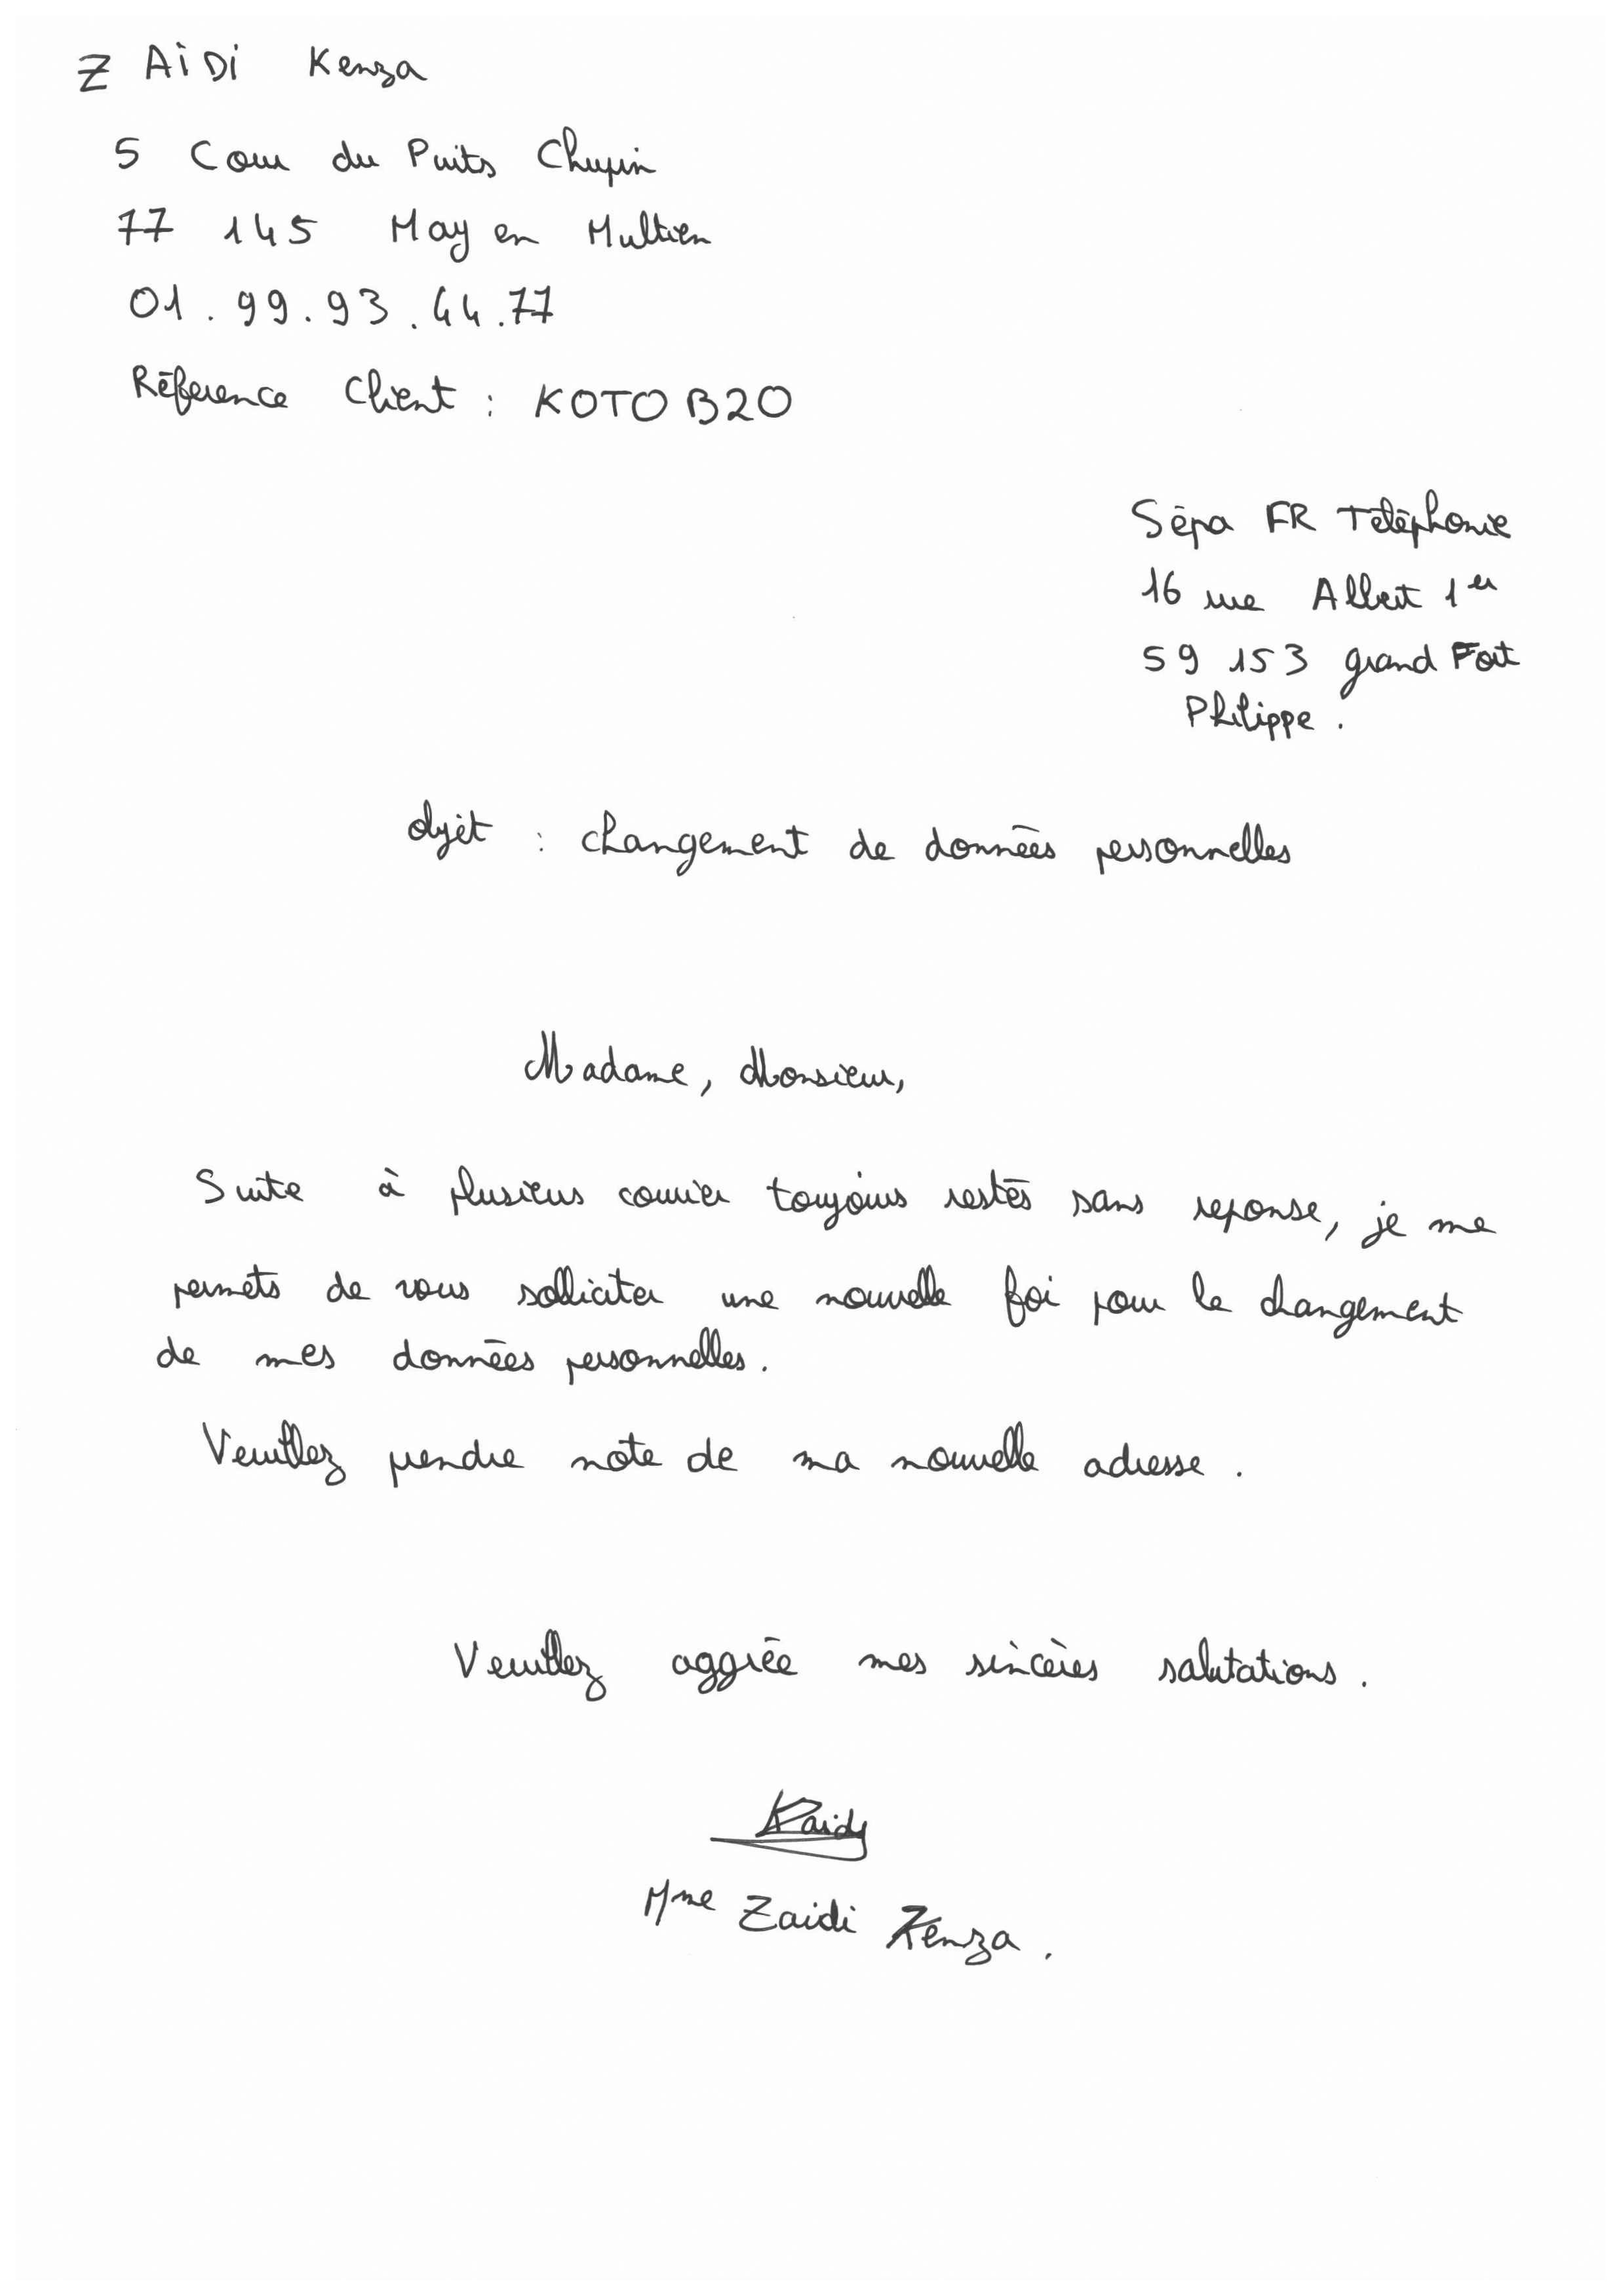 ZAIDI Kenza
5 Cour du Puits Chupin
77 145 May en Multien
01.99.93.44.77
Réference Client : KOTOB20
Sépa FR Téléphonie
16 rue Albert 1er
59 153 grand Fort
Philippe.
objet : changement de données personnelles
Madame, Monsieur,
Suite à plusieurs courrier toujours restés sans reponse, je me
permets de vous solliciter une nouvelle foi pour le changement
de mes données personnelles.
Veuillez prendre note de ma nouvelle adresse.
Veuillez aggrée mes sincères salutations.
Mme Zaidi Kenza.